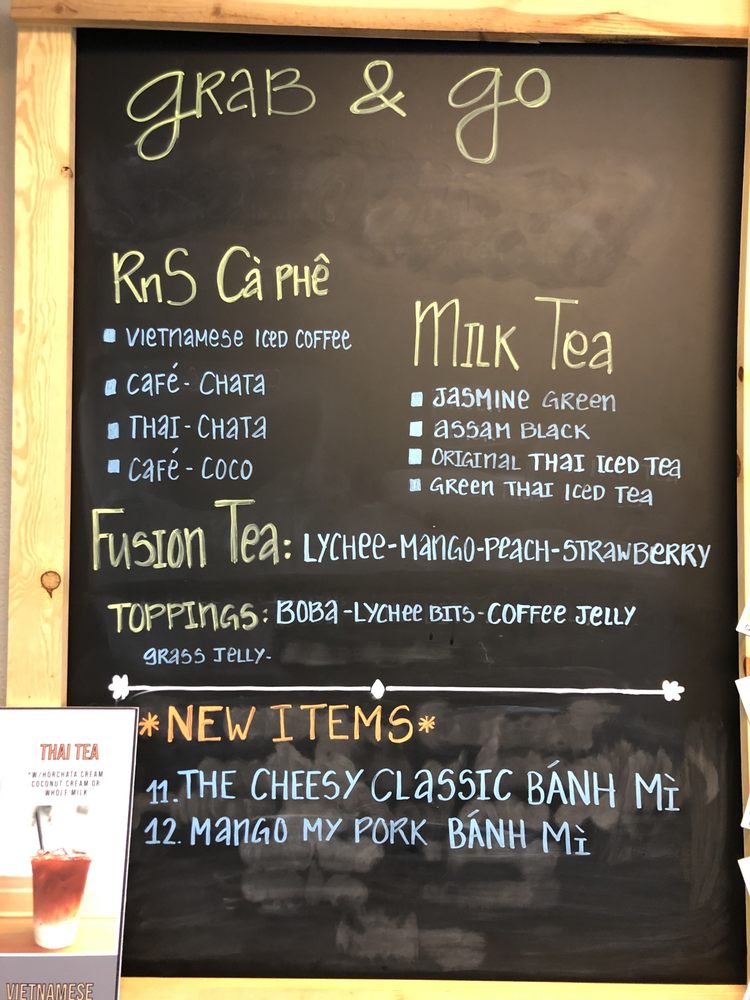 GRAB & GO
RnS Cà PHÊ
VIETNAMESE ICED COFFEE
CAFÉ - CHATA
THAI - CHATA
CAFÉ - COCO
MILK Tea
JASMINE GREEN
ASSAM BLACK
ORIGINAL THAI ICED TEA
GREEN THAI ICED TEA
FUSION Tea: LYCHEE-MANGO-PEACH-STRAWBERRY
TOPPINGS: BOBA-LYCHEE BITS-COFFEE JELLY
GRASS JELLY-
*NEW ITEMS*
11. THE CHEESY CLASSIC BÁNH MÌ
12. MANGO MY PORK BÁNH MÌ
THAI TEA
*W/HORCHATA CREAM
COCONUT CREAM OR
WHOLE MILK
VIETNAMESE